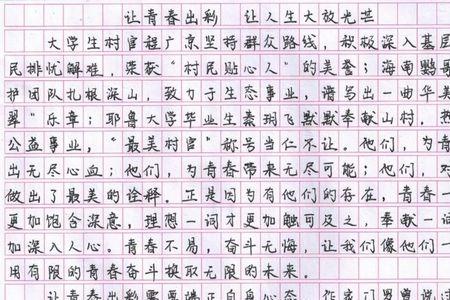 让青春出彩 让人生大放光芒
大学生村官程广京坚持群众路线，积极深入基层
民排忧解难，荣获“村民贴心人”的美誉；海南鹦哥
护团队扎根深山，致力于生态事业，谱写出一曲华美
翠”乐章；耶鲁大学毕业生秦玥飞默默奉献山村，热
公益事业，“最美村官”称号当仁不让。他们，为青
出无尽心血；他们，为青春带来无尽可能；他们，对
做出了最美的诠释。正是因为有他们的存在，青春一
更加饱含深意，理想一词才更加触可及之，奉献一词
加深入人心。青春不易，奋斗无悔，让我们像他们一
用有限的青春奋斗换取无限的未来。
让青春出彩需要端正自身心态。作家门男曾说过